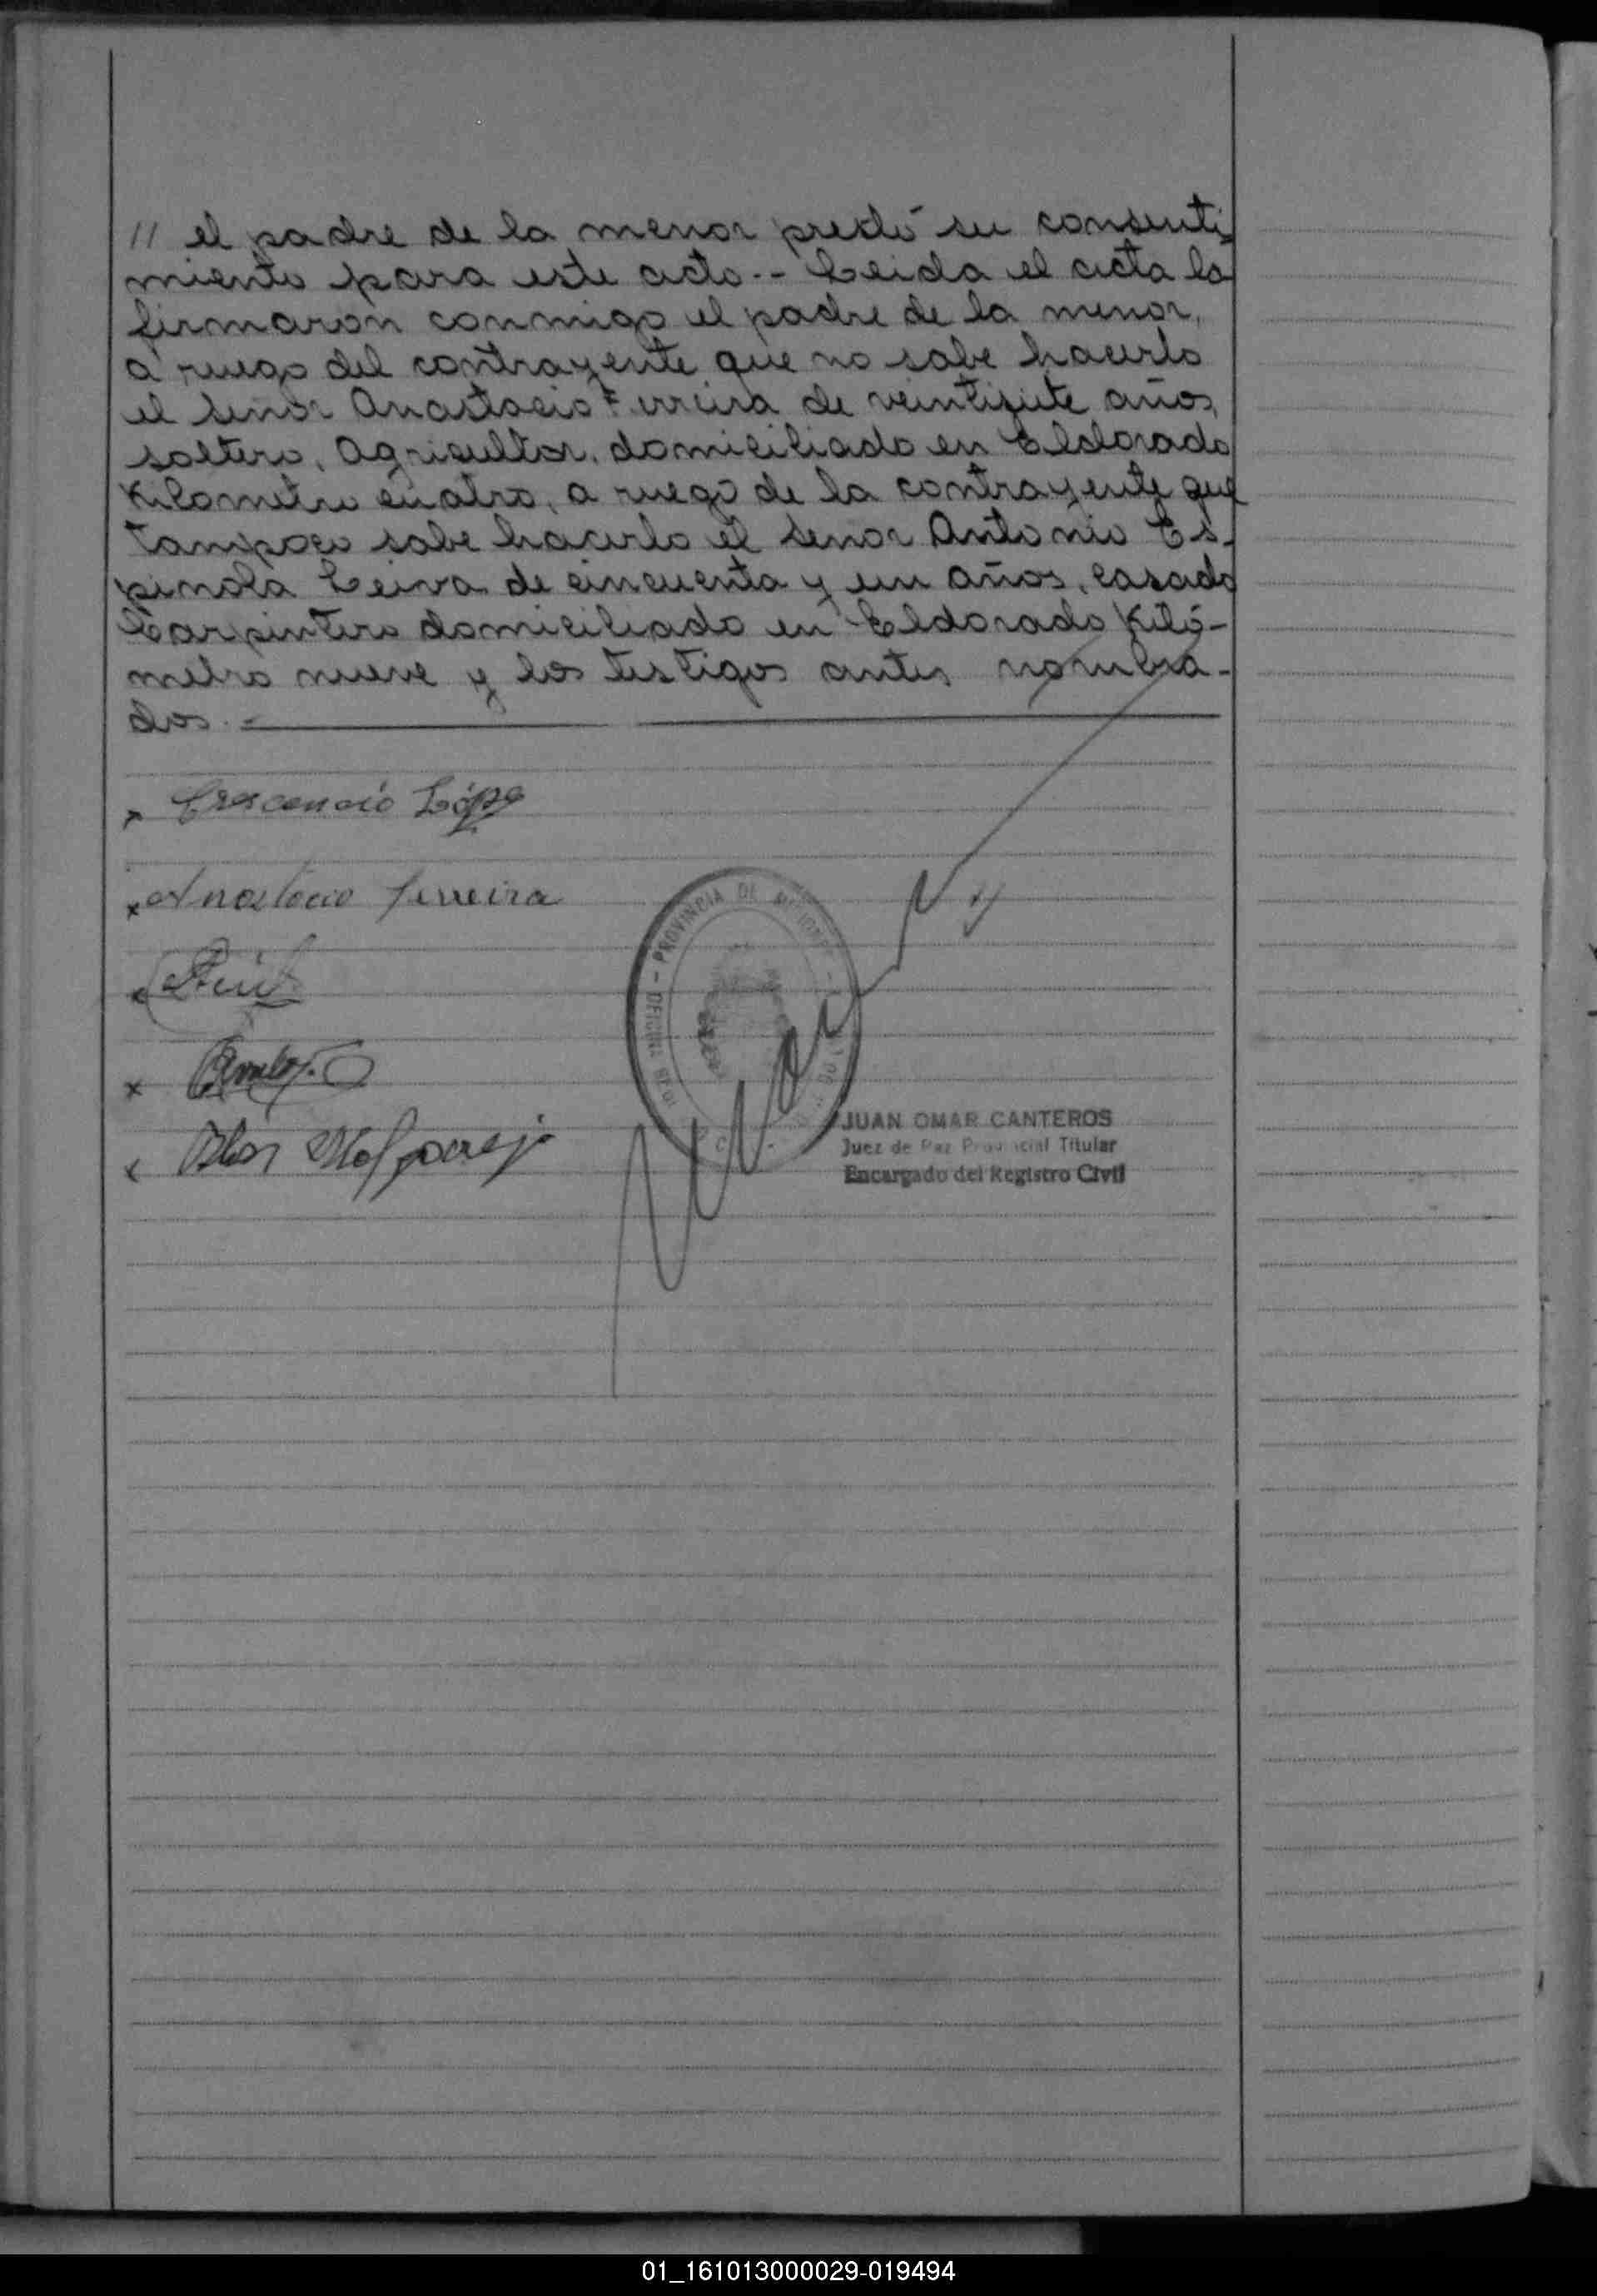 // el padre de la menor prestó su consenti-
miento para este acto.-- Leida el acta la
firmaron conmigo el padre de la menor,
a ruego del contrayente que no sabe hacerlo
el señor Anastacio Ferreira de veintisiete años,
soltero, Agricultor, domiciliado en Eldorado
Kilometro cuatro, a ruego de la contrayente que
tampoco sabe hacerlo el señor Antonio Es-
pinola Leiva de cincuenta y un años, casado
Carpintero domiciliado en Eldorado Kiló-
metro nueve y los testigos antes nombra-
dos.-
x Crescencio López
x Anastacio Ferreira
x
x
x Blas Melgarejo
PROVINCIA DE MISIONES - OFICINA
JUAN OMAR CANTEROS
Juez de Paz Provincial Titular
Encargado del Registro Civil
01_161013000029-019494